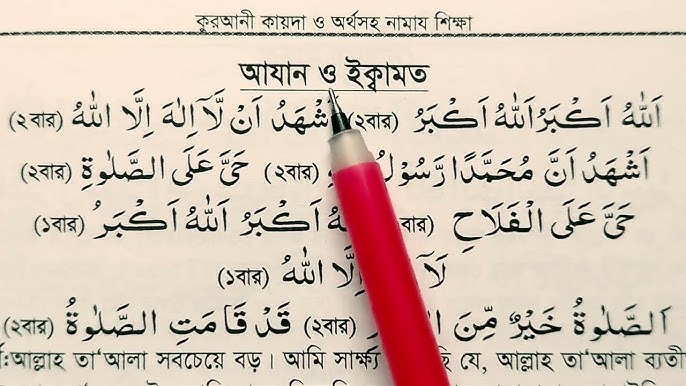 কুরআনী কায়দা ও অর্থসহ নামায শিক্ষা
আযান ও ইক্বামত
اَللّٰهُ اَكْبَرُ اَللّٰهُ اَكْبَرُ (২বার) شْهَدُ اَنْ لَّآ اِلٰهَ اِلَّا اللّٰهُ (২বার)
اَشْهَدُ اَنَّ مُحَمَّدًا رَّسُوْلُ (২বার) حَىَّ عَلَى الصَّلٰوةِ (২বার)
حَىَّ عَلَى الْفَلَاحِ বার) اَكْبَرُ اَللّٰهُ اَكْبَرُ (১বার)
اِلَّا اللّٰهُ (১বার)
اَلصَّلٰوةُ خَيْرٌ مِّنَ (২বার) قَدْ قَامَتِ الصَّلٰوةُ (২বার)
আল্লাহ তা‘আলা সবচেয়ে বড়। আমি সাক্ষ্য যে, আল্লাহ তা‘আলা ব্যতী